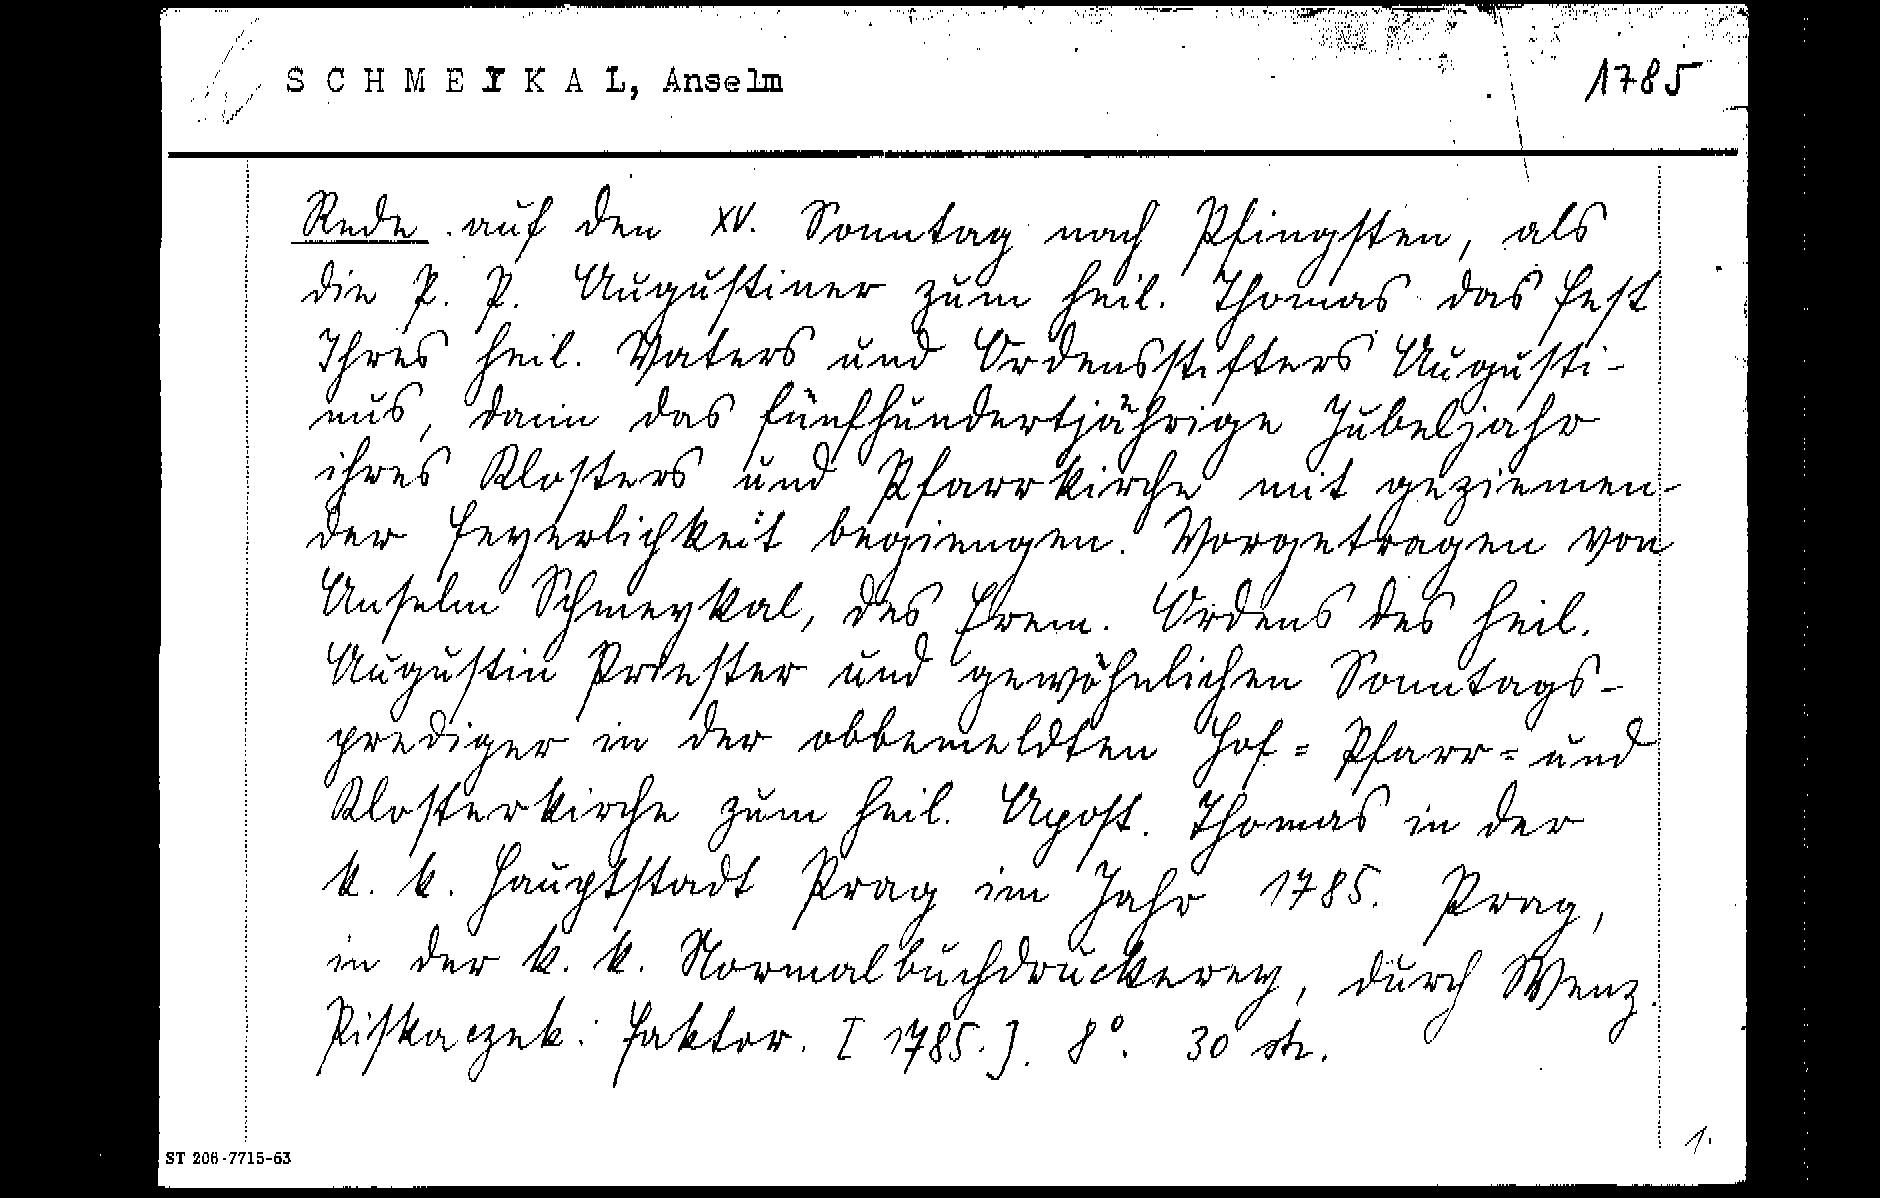 SCHMEYKAL, Anselm 1785
Rede auf den XV. Sonntag nach Pfingsten, als
die P. P. Augustiner zum heil. Thomas das Fest
Ihres heil. Vaters und Ordensstifters Augusti-
nus, dann das fünfhundertjährige Jubeljahr
ihres Klosters und Pfarrkirche mit geziemen-
der Feyerlichkeit begiengen. Vorgetragen von
Anselm Schmeykal, des Erem. Ordens des heil.
Augustin Priester und gewöhnlichen Sonntags-
prediger in der obbemeldten Hof= Pfarr= und
Klosterkirche zum heil. Apost. Thomas in der
k. k. Hauptstadt Prag im Jahr 1785. Prag,
in der k. k. Normalbuchdruckerey, durch Wenz.
Piskaczek: Faktor. [1785.]. 8°. 30 str.
1.
ST 206-7715-63